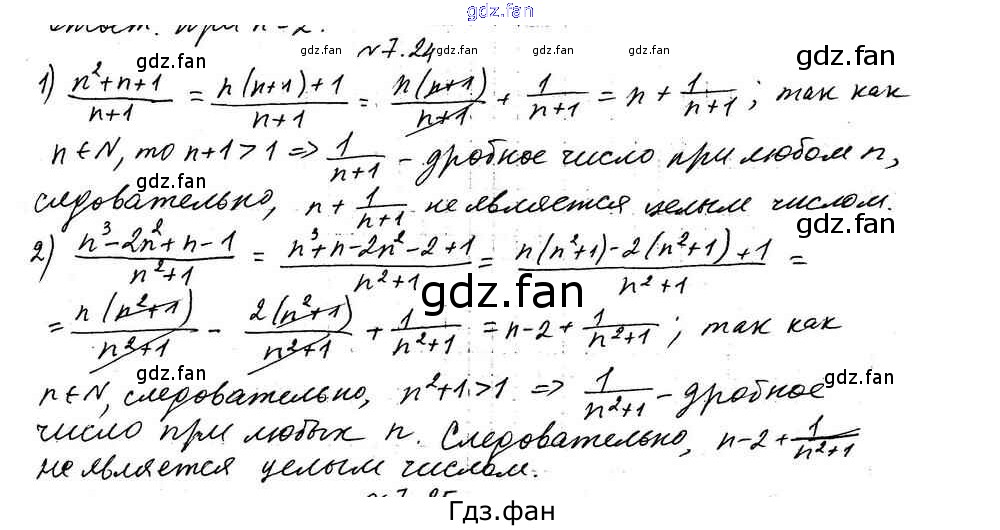 gdz.fan
ответ. при n=2.
gdz.fan
№7.24
gdz.fan
gdz.fan
1) (n²+n+1)/(n+1) = (n(n+1)+1)/(n+1) = (n(n+1))/(n+1) + 1/(n+1) = n + 1/(n+1); так как
gdz.fan
gdz.fan
n∈N, то n+1>1 ⇒ 1/(n+1) - дробное число при любом n,
gdz.fan
следовательно, n + 1/(n+1) не является целым числом.
gdz.fan
gdz.fan
2) (n³-2n²+n-1)/(n²+1) = (n³+n-2n²-2+1)/(n²+1) = (n(n²+1)-2(n²+1)+1)/(n²+1) =
gdz.fan
= (n(n²+1))/(n²+1) - (2(n²+1))/(n²+1) + 1/(n²+1) = n-2 + 1/(n²+1); так как
gdz.fan
gdz.fan
gdz.fan
n∈N, следовательно, n²+1>1 ⇒ 1/(n²+1) - дробное
gdz.fan
число при любых n. Следовательно, n-2 + 1/(n²+1)
не является целым числом.
gdz.fan
№7.25
Гдз.фан